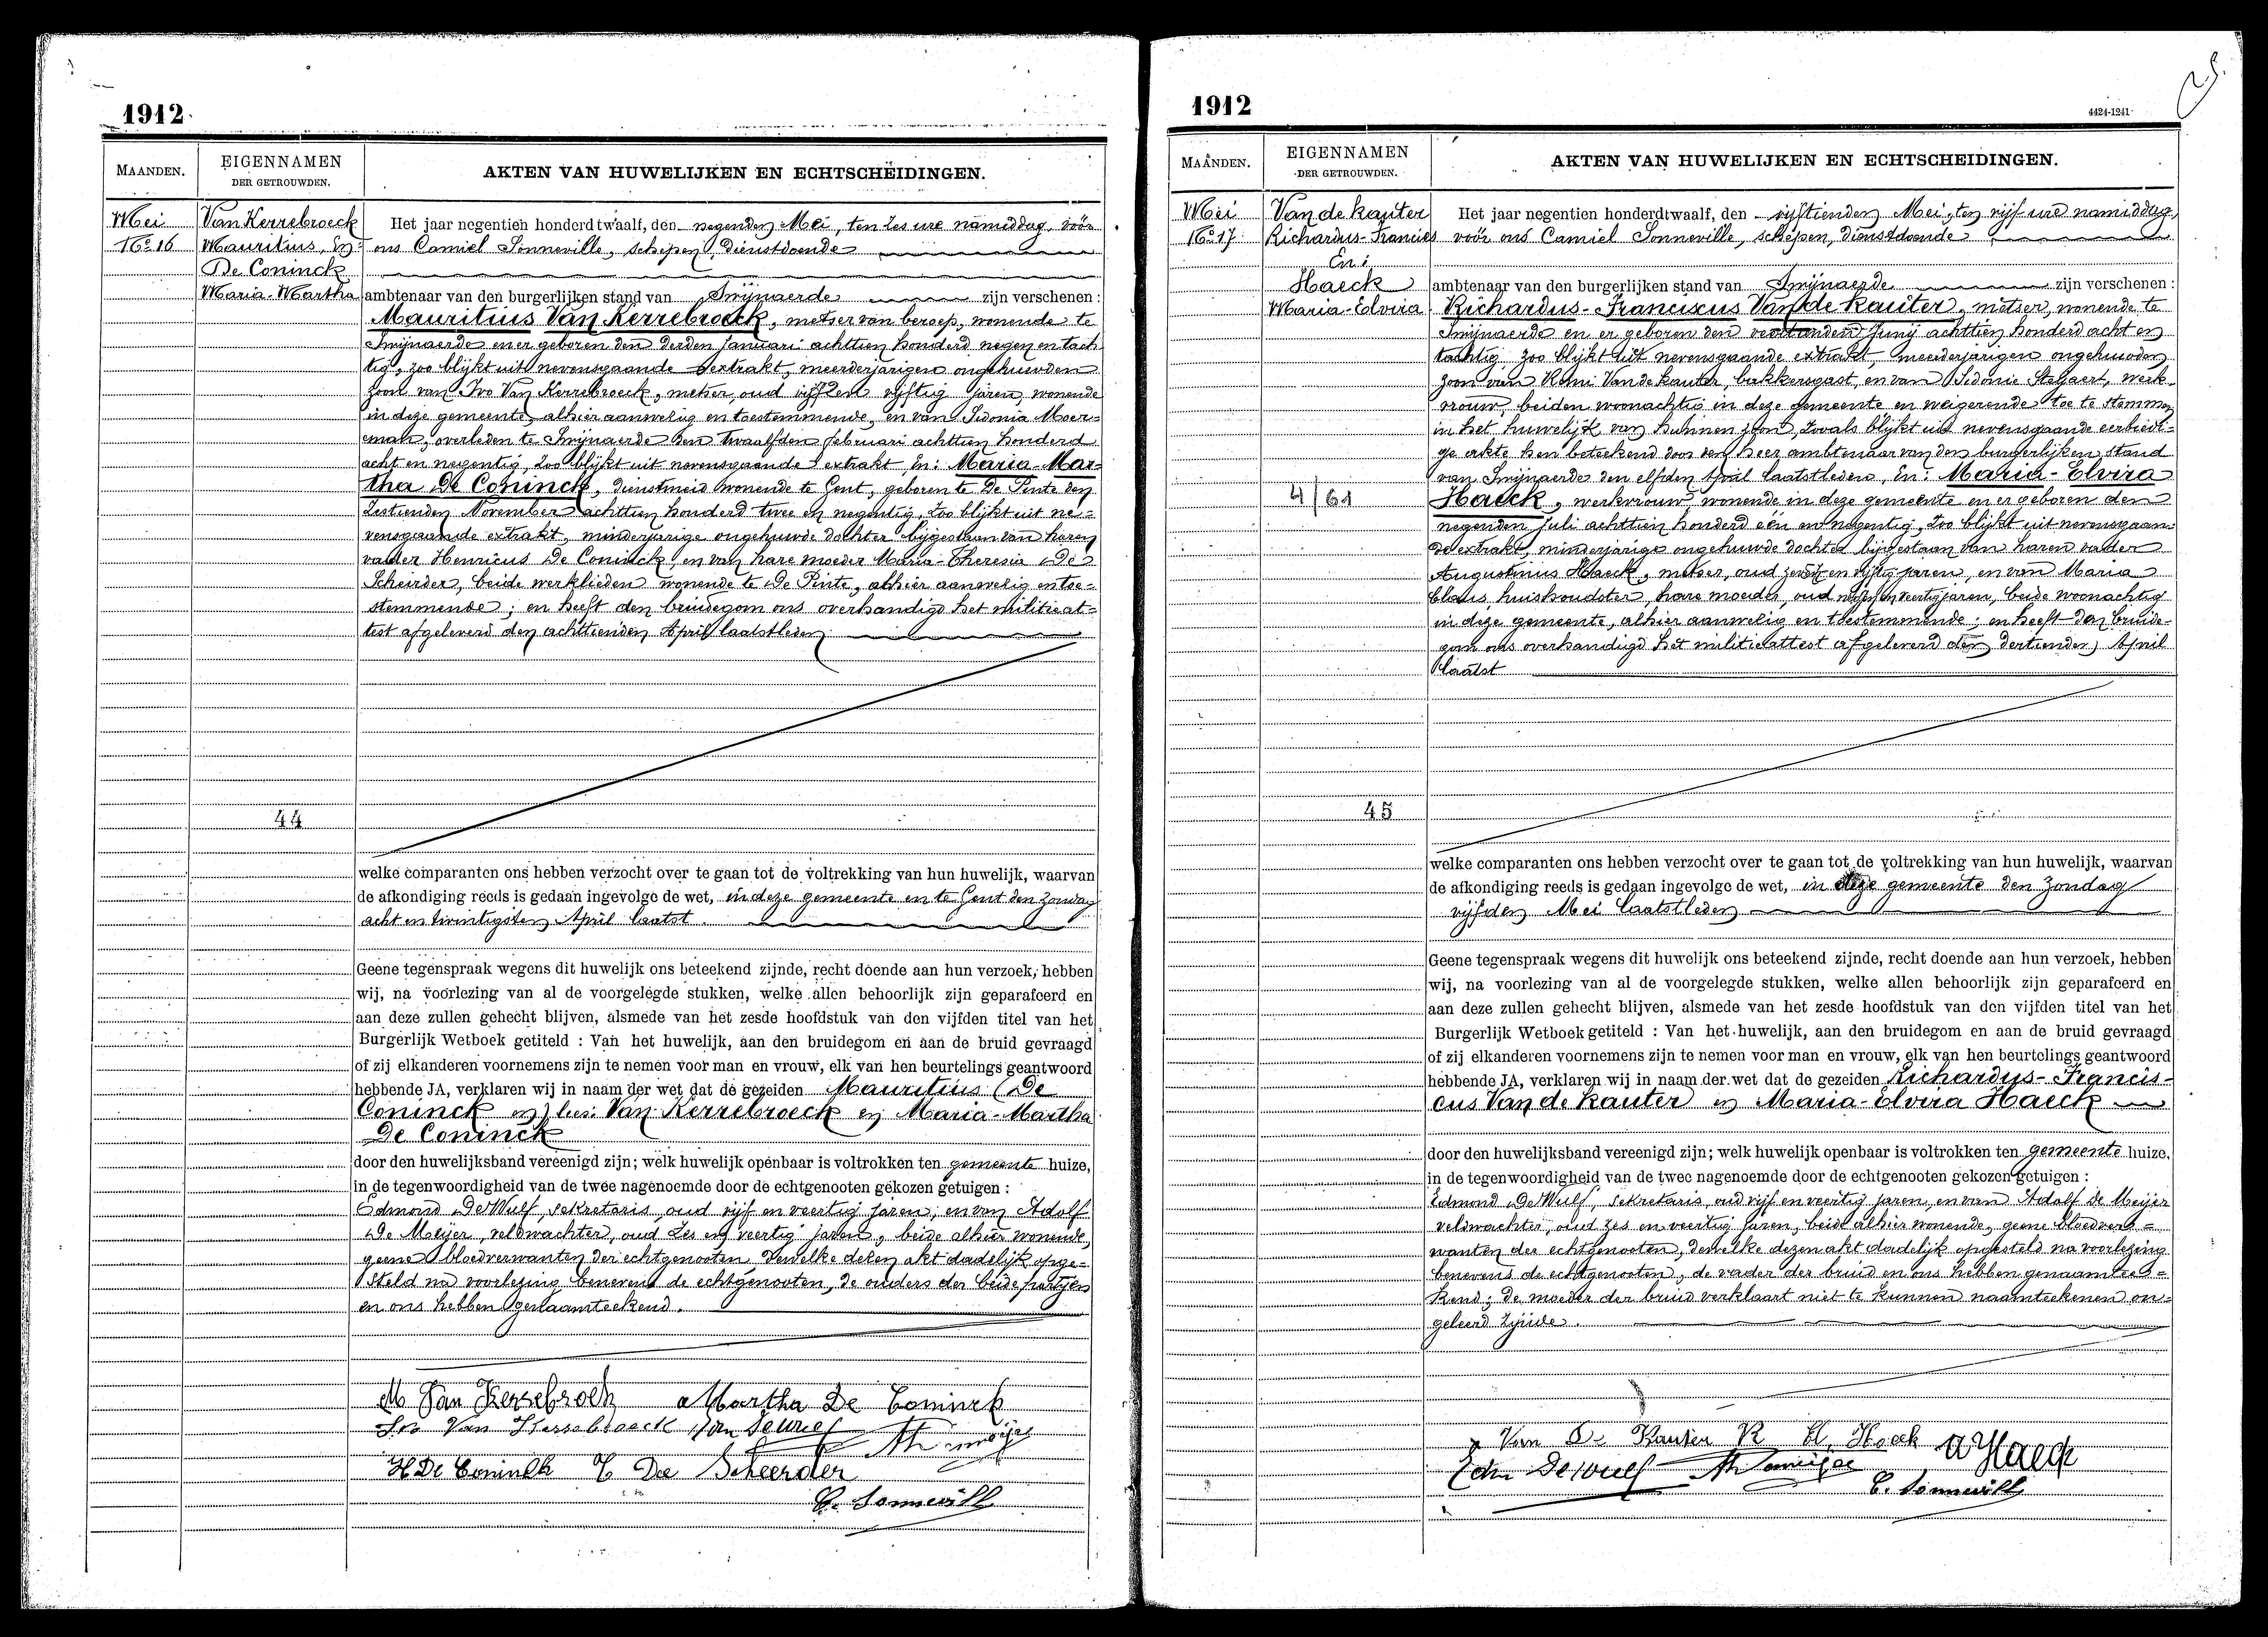 1912
MAANDEN.
EIGENNAMEN
DER GETROUWDEN.
AKTEN VAN HUWELIJKEN EN ECHTSCHEIDINGEN.
Mei
No 16
Van Kerrebroeck
Mauritius, En:
De Coninck
Maria-Martha
44
Het jaar negentien honderd twaalf, den negenden Mei, ten zes ure namiddag voor
ons Camiel Sonneville, schepen, dienstdoende
ambtenaar van den burgerlijken stand van Swijnaerde zijn verschenen:
Mauritius Van Kerrebroeck, metser van beroep, wonende te
Swijnaerde en er geboren den derden Januari achttien honderd negen en tach-
tig, zoo blijkt uit nevensgaande extrakt, meerderjarigen ongehuwden
zoon van Ivo Van Kerrebroeck, metser, oud vijf en vijftig jaren, wonende
in deze gemeente, alhier aanwezig en toestemmende, en van Sidonia Moer-
eman, overleden te Swijnaerde den twaalfden februari achttien honderd
acht en negentig, zoo blijkt uit nevensgaande extrakt, En: Maria-Mar-
tha De Coninck, dienstmeid wonende te Gent, geboren te De Pinte den
zestienden November achttien honderd twee en negentig, zoo blijkt uit ne-
vensgaande extrakt, minderjarige ongehuwde dochter bijgestaan van haren
vader Henricus De Coninck, en van hare moeder Maria-Theresia De
Scheirder, beide werklieden wonende te De Pinte, alhier aanwezig en toe-
stemmende; en heeft den bruidegom ons overhandigd het militieat-
test afgeleverd den achttienden April laatstleden.
welke comparanten ons hebben verzocht over te gaan tot de voltrekking van hun huwelijk, waarvan
de afkondiging reeds is gedaan ingevolge de wet, in deze gemeente en te Gent den Zondag
acht en twintigsten April laatst.
Geene tegenspraak wegens dit huwelijk ons beteekend zijnde, recht doende aan hun verzoek, hebben
wij, na voorlezing van al de voorgelegde stukken, welke allen behoorlijk zijn geparafeerd en
aan deze zullen gehecht blijven, alsmede van het zesde hoofdstuk van den vijfden titel van het
Burgerlijk Wetboek getiteld : Van het huwelijk, aan den bruidegom en aan de bruid gevraagd
of zij elkanderen voornemens zijn te nemen voor man en vrouw, elk van hen beurtelings geantwoord
hebbende JA, verklaren wij in naam der wet dat de gezeiden Mauritius (De
Coninck en) lees: Van Kerrebroeck en Maria-Martha
De Coninck
door den huwelijksband vereenigd zijn; welk huwelijk openbaar is voltrokken ten gemeente huize,
in de tegenwoordigheid van de twee nagenoemde door de echtgenooten gekozen getuigen :
Edmond De Wulf, sekretaris, oud vijf en veertig jaren, en van Adolf
De Meijer, veldwachter, oud zes en veertig jaren, beide alhier wonende,
geene bloedverwanten der echtgenooten, dewelke dezen akt dadelijk opge-
steld na voorlezing benevens de echtgenooten, de ouders der beide partijen
en ons hebben genaamteekend.
M Van Kerrebroek Martha De Coninck
Ivo Van Kerrebroeck
H De Coninck De Scheerder
C. Sonneville
1912
4424-1241
MAANDEN.
EIGENNAMEN
DER GETROUWDEN.
AKTEN VAN HUWELIJKEN EN ECHTSCHEIDINGEN.
Mei
No 17
Van de Kauter
Richardus-Franciscus
En:
Haeck
Maria-Elvira
4/61
45
Het jaar negentien honderdtwaalf, den vijftienden Mei, ten vijf ure namiddag,
voor ons Camiel Sonneville, schepen, dienstdoende
ambtenaar van den burgerlijken stand van Swijnaerde zijn verschenen :
Richardus-Franciscus Van de Kauter, metser, wonende te
Swijnaerde en er geboren den Junij achttien honderd acht en
tachtig, zoo blijkt uit nevensgaande extrakt, meerderjarigen ongehuwden
zoon van Remi Van de Kauter, bakkersgast, en van Sidonie Steyaert, werk-
vrouw, beiden woonachtig in deze gemeente en weigerende toe te stemmen
in het huwelijk van hunnen zoon, zooals blijkt uit nevensgaande eerbiedi-
ge akte hen beteekend door den heer ambtenaar van den burgerlijken stand
van Swijnaerde den elfden April laatstleden, En: Maria-Elvira
Haeck, werkvrouw, wonende in deze gemeente en er geboren den
negenden Juli achttien honderd één en negentig, zoo blijkt uit nevensgaan-
de extrakt, minderjarige ongehuwde dochter bijgestaan van haren vader
Augustinus Haeck, metser, oud en vijftig jaren, en van Maria
Claus, huishoudster, hare moeder, oud en veertig jaren, beide woonachtig
in deze gemeente, alhier aanwezig en toestemmende; en heeft den bruide-
gom ons overhandigd het militieattest afgeleverd den dertienden April
laatst
welke comparanten ons hebben verzocht over te gaan tot de voltrekking van hun huwelijk, waarvan
de afkondiging reeds is gedaan ingevolge de wet, in deze gemeente den Zondag
vijfden Mei laatstleden
Geene tegenspraak wegens dit huwelijk ons beteekend zijnde, recht doende aan hun verzoek, hebben
wij, na voorlezing van al de voorgelegde stukken, welke allen behoorlijk zijn geparafeerd en
aan deze zullen gehecht blijven, alsmede van het zesde hoofdstuk van den vijfden titel van het
Burgerlijk Wetboek getiteld : Van het huwelijk, aan den bruidegom en aan de bruid gevraagd
of zij elkanderen voornemens zijn te nemen voor man en vrouw, elk van hen beurtelings geantwoord
hebbende JA, verklaren wij in naam der wet dat de gezeiden Richardus-Francis-
cus Van de Kauter en Maria-Elvira Haeck
door den huwelijksband vereenigd zijn; welk huwelijk openbaar is voltrokken ten gemeente huize,
in de tegenwoordigheid van de twee nagenoemde door de echtgenooten gekozen getuigen :
Edmond De Wulf, sekretaris, oud vijf en veertig jaren, en van Adolf de Meijer
veldwachter, oud zes en veertig jaren, beide alhier wonende, geene bloedver-
wanten der echtgenooten, dewelke dezen akt dadelijk opgesteld na voorlezing
benevens de echtgenooten, de vader der bruid en ons hebben genaamtee-
kend; de moeder der bruid verklaart niet te kunnen naamteekenen on-
geleerd zijnde.
Van De Kauter R El. Haeck A Haeck
Edm Dewulf
C. Sonneville